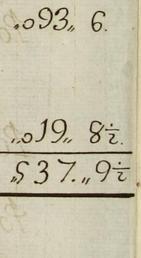 „093„ 6.
„019„ 8½.
„537.„ 9½